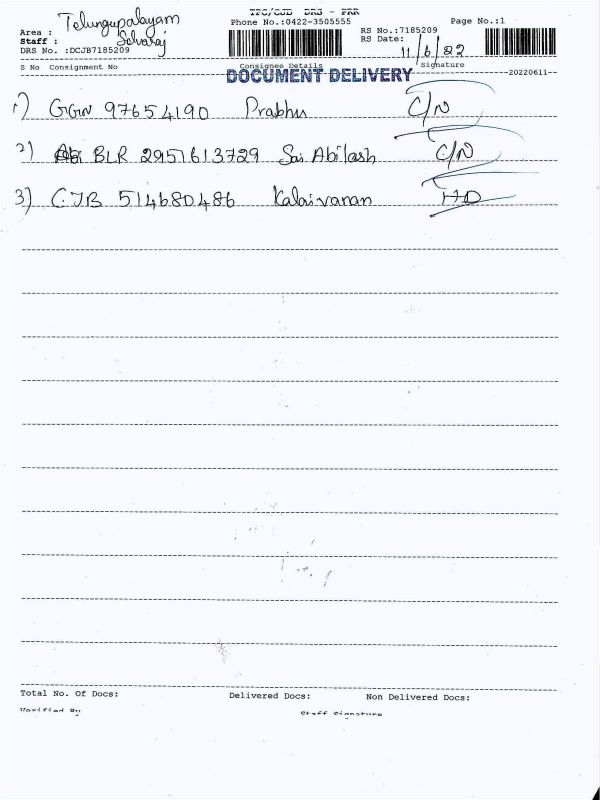 TPC/CJB DRS - PRR
Telungupalayam
Phone No.:0422-3505555 Page No.:1
Area :
RS No.:7185209
Staff : Selvaraj
RS Date: 11/6/22
DRS No. :DCJB7185209
S No Consignment No Consignee Details Signature
DOCUMENT DELIVERY
--20220611--
1) GGN 97654190 Prabhu C/N
2) BLR 2951613729 Sai Abilash C/N
3) CJB 514680486 Kalaivanan HD
Total No. Of Docs: Delivered Docs: Non Delivered Docs:
Verified By Staff Signature